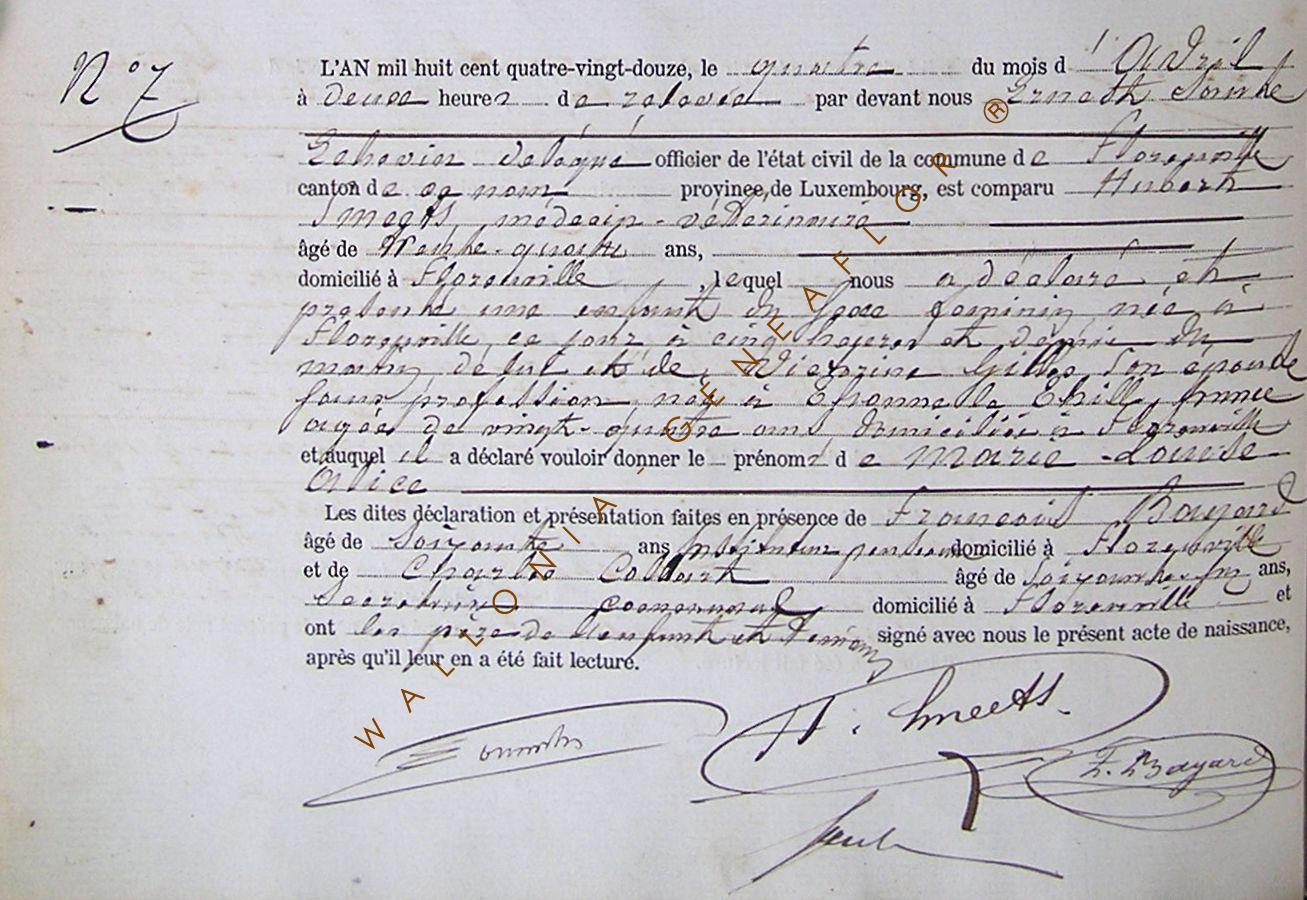 N° 7
L'AN mil huit cent quatre-vingt-douze, le quatre du mois d'Avril
à deux heures de relevée par devant nous Ernest
Echevin délégué officier de l'état civil de la commune de Florenville
canton de ce nom province de Luxembourg, est comparu Hubert
Smeets, médecin-vétérinaire
âgé de trente-quatre ans,
domicilié à Florenville, lequel nous a déclaré et
présenté une enfant du sexe féminin née à
Florenville, ce jour à cinq heures et demie du
matin, de lui et de Gilles, son épouse
sans profession, née à France
agée de vingt-quatre ans, domiciliée à Florenville
et auquel il a déclaré vouloir donner les prénoms de Marie-Louise
Alice
Les dites déclaration et présentation faites en présence de François Bayard
âgé de soixante ans domicilié à Florenville
et de Charles Collart âgé de ans,
Secrétaire communal domicilié à Florenville et
ont les père de l'enfant et témoins signé avec nous le présent acte de naissance,
après qu'il leur en a été fait lecture.
H. Smeets.
F. Bayard
WALLONIA - GENEAFLOR ®